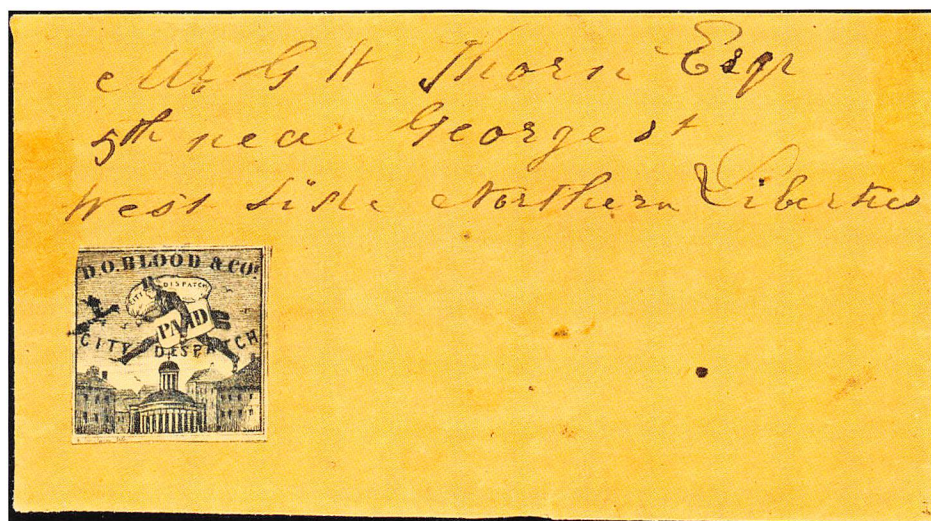 Mr G W Thorn Esqr
5th near George st
West Side Northern Liberties
D.O. BLOOD & CO'S
CITY DISPATCH
PAID
CITY DESPATCH